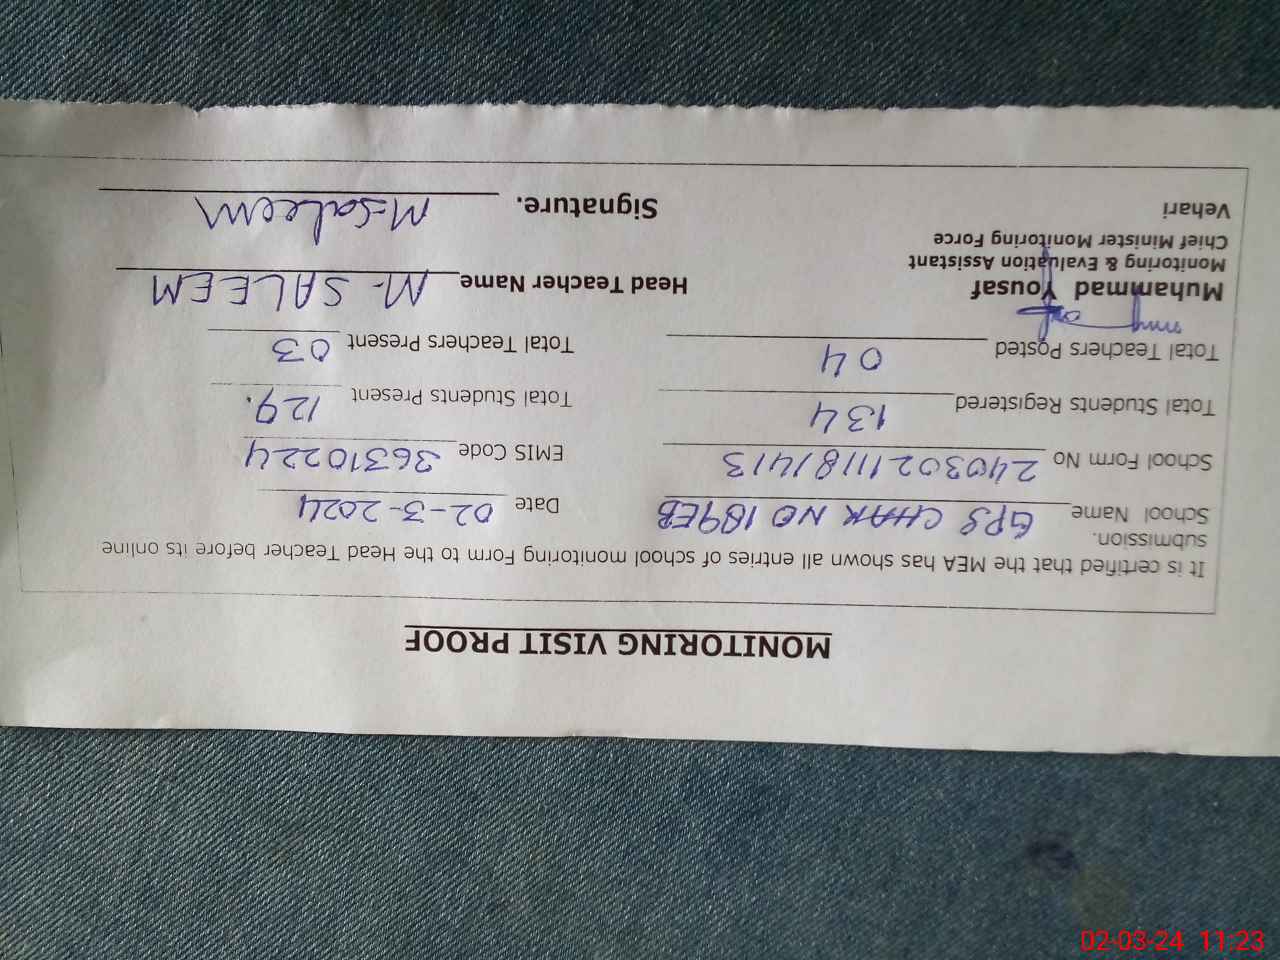 MONITORING VISIT PROOF
It is certified that the MEA has shown all entries of school monitoring Form to the Head Teacher before its online
submission.
School Name GPS CHAK NO 189EB Date 02-3-2024
School Form No 2403021118/413 EMIS Code 36310224
Total Students Registered 134 Total Students Present 129.
Total Teachers Posted 04 Total Teachers Present 03
Muhammad Yousaf Head Teacher Name M-SALEEM
Monitoring & Evaluation Assistant
Chief Minister Monitoring Force
Vehari Signature. M-Saleem
02-03-24 11:23